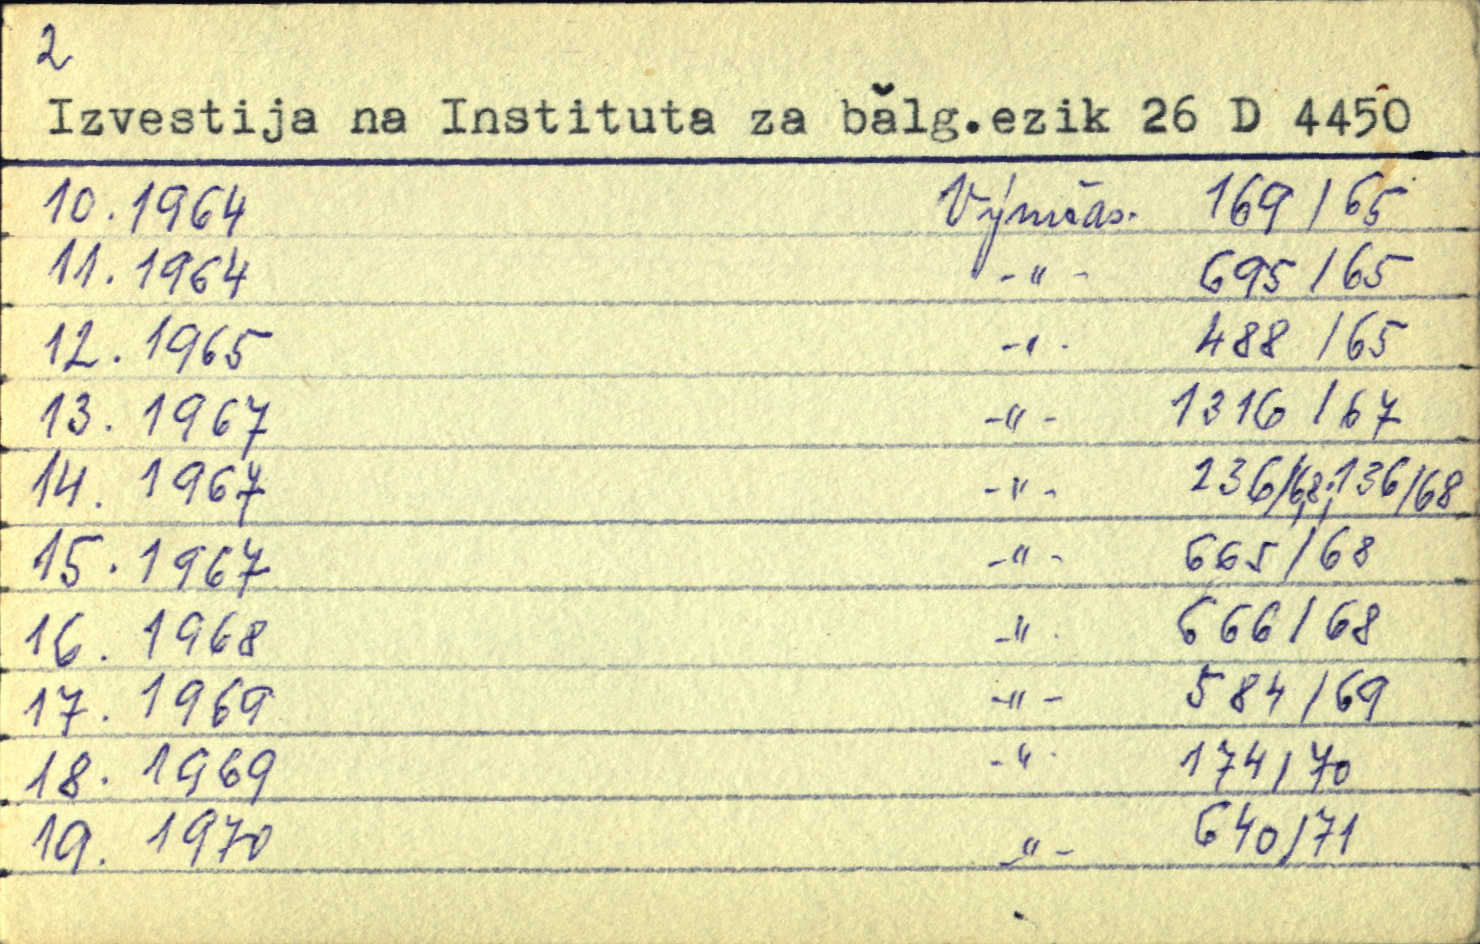 2
Izvestija na Instituta za bălg.ezik 26 D 4450
10. 1964 Výmčas. 169/65
11. 1964 -"- 695/65
12. 1965 -"- 488/65
13. 1967 -"- 1316/67
14. 1967 -"- 236/68; 136/68
15. 1967 -"- 665/68
16. 1968 -"- 666/68
17. 1969 -"- 584/69
18. 1969 -"- 174/70
19. 1970 -"- 640/71